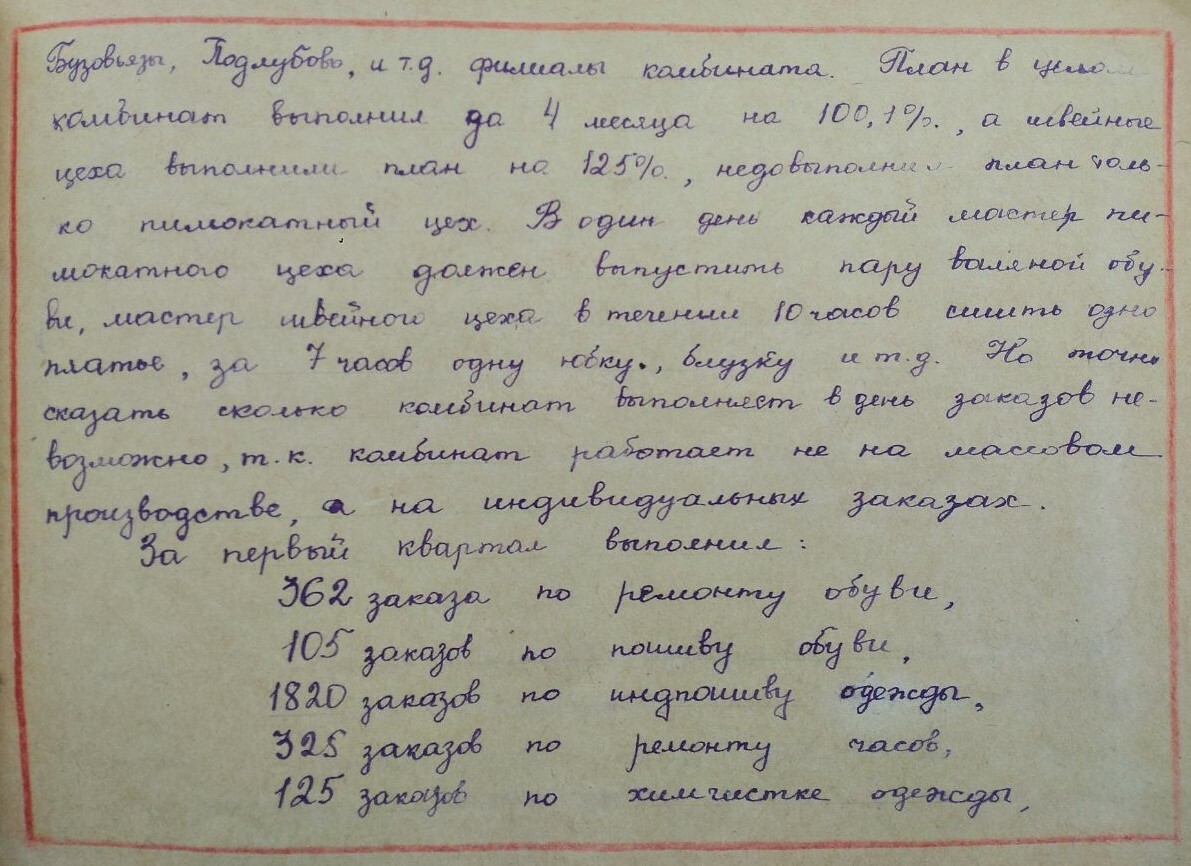 Бузовьязы, Подлубово, и т.д. филиалы комбината. План в целом
комбинат выполнил да 4 месяца на 100,1%., а швейные
цеха выполнили план на 125%., недовыполнил план толь-
ко пимокатный цех. В один день каждый мастер пи-
мокатного цеха должен выпустить пару валяной обу-
ви, мастер швейного цеха в течении 10 часов сшить одно
платье, за 7 часов одну юбку., блузку и т.д. Но точно
сказать сколько комбинат выполняет в день заказов не-
возможно, т.к. комбинат работает не на массовом
производстве, а на индивидуальных заказах.
За первый квартал выполнил:
362 заказа по ремонту обуви,
105 заказов по пошиву обуви,
1820 заказов по индпошиву одежды,
325 заказов по ремонту часов,
125 заказов по химчистке одежды,